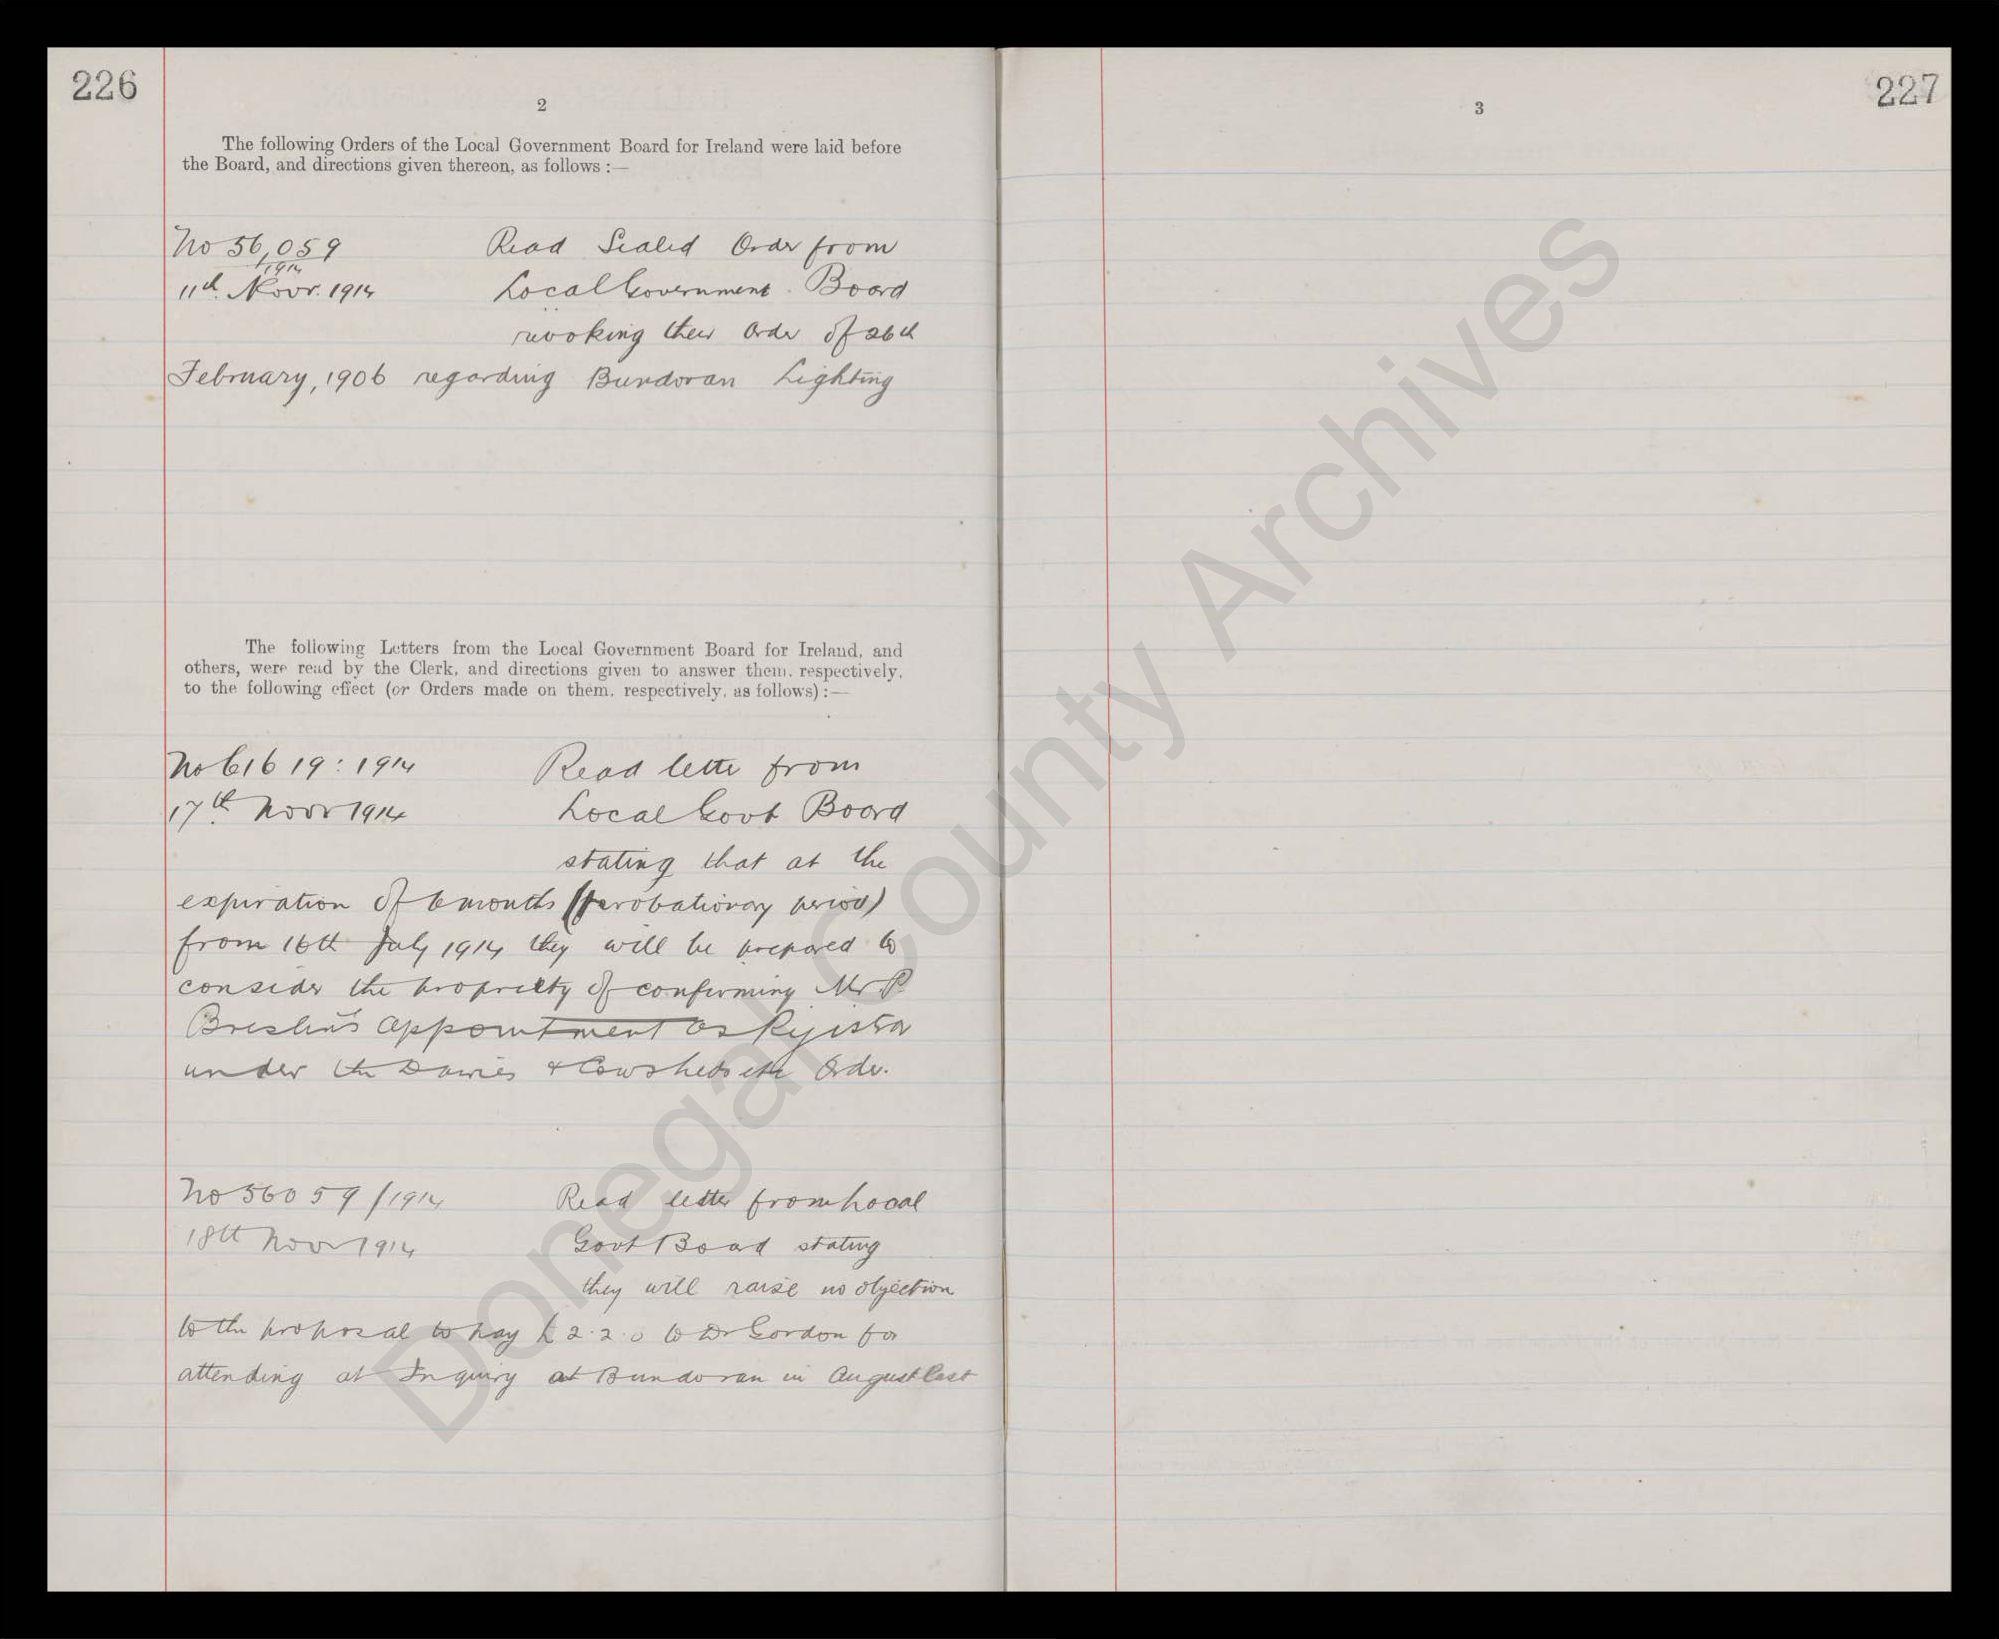 226
2
The following Orders of the Local Government Board for Ireland were laid before
the Board, and directions given thereon, as follows :—
No 56,059
1914
Read Sealed Order from
11th. Novr. 1914
Local Government Board
revoking their Order of 26th
February, 1906 regarding Bundoran Lighting
The following Letters from the Local Government Board for Ireland, and
others, were read by the Clerk, and directions given to answer them, respectively,
to the following effect (or Orders made on them, respectively, as follows) :—
No 61619 : 1914
Read letter from
17th Novr 1914
Local Govt Board
stating that at the
expiration of 6 months (probationary period)
from 16th July 1914 they will be prepared to
consider the propriety of confirming Mr P
Breslin's appointment as Register
under the Dairies & Cowsheds etc Order.
No 56059/1914
Read letter from Local
18th Novr 1914
Govt Board stating
they will raise no objection
to the proposal to pay £2.2.0 to Dr Gordon for
attending at Inquiry at Bundoran in August last
3
227
Donegal County Archives